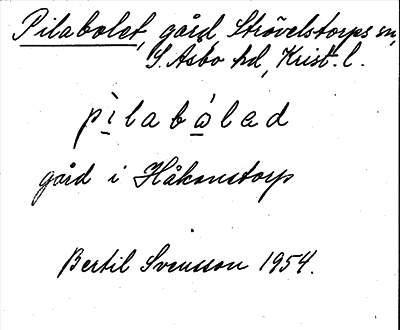 Pilabolet, gård, Strövelstorps sn,
S. Åsbo hd, Krist. l.
pìlabólad
gård i Håkonstorp
Bertil Svensson 1954.